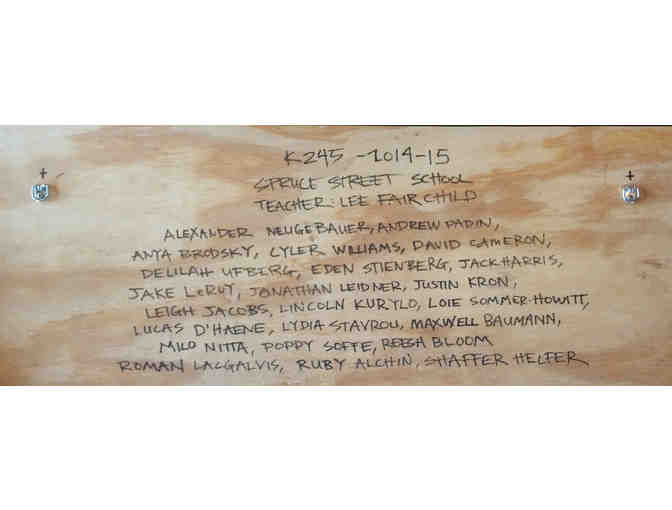 K245 -2014-15
SPRUCE STREET SCHOOL
TEACHER: LEE FAIRCHILD
ALEXANDER NEUGEBAUER, ANDREW PADIN,
ANYA BRODSKY, CYLER WILLIAMS, DAVID CAMERON,
DELILAH UFBERG, EDEN STIENBERG, JACK HARRIS,
JAKE LEROY, JONATHAN LEIDNER, JUSTIN KRON,
LEIGH JACOBS, LINCOLN KURYLO, LOIE SOMMER-HOWITT,
LUCAS D'HAENE, LYDIA STAVROU, MAXWELL BAUMANN,
MILO NITTA, POPPY SOFFE, REESH BLOOM
ROMAN LACGALVIS, RUBY ALCHIN, SHAFFER HELFER